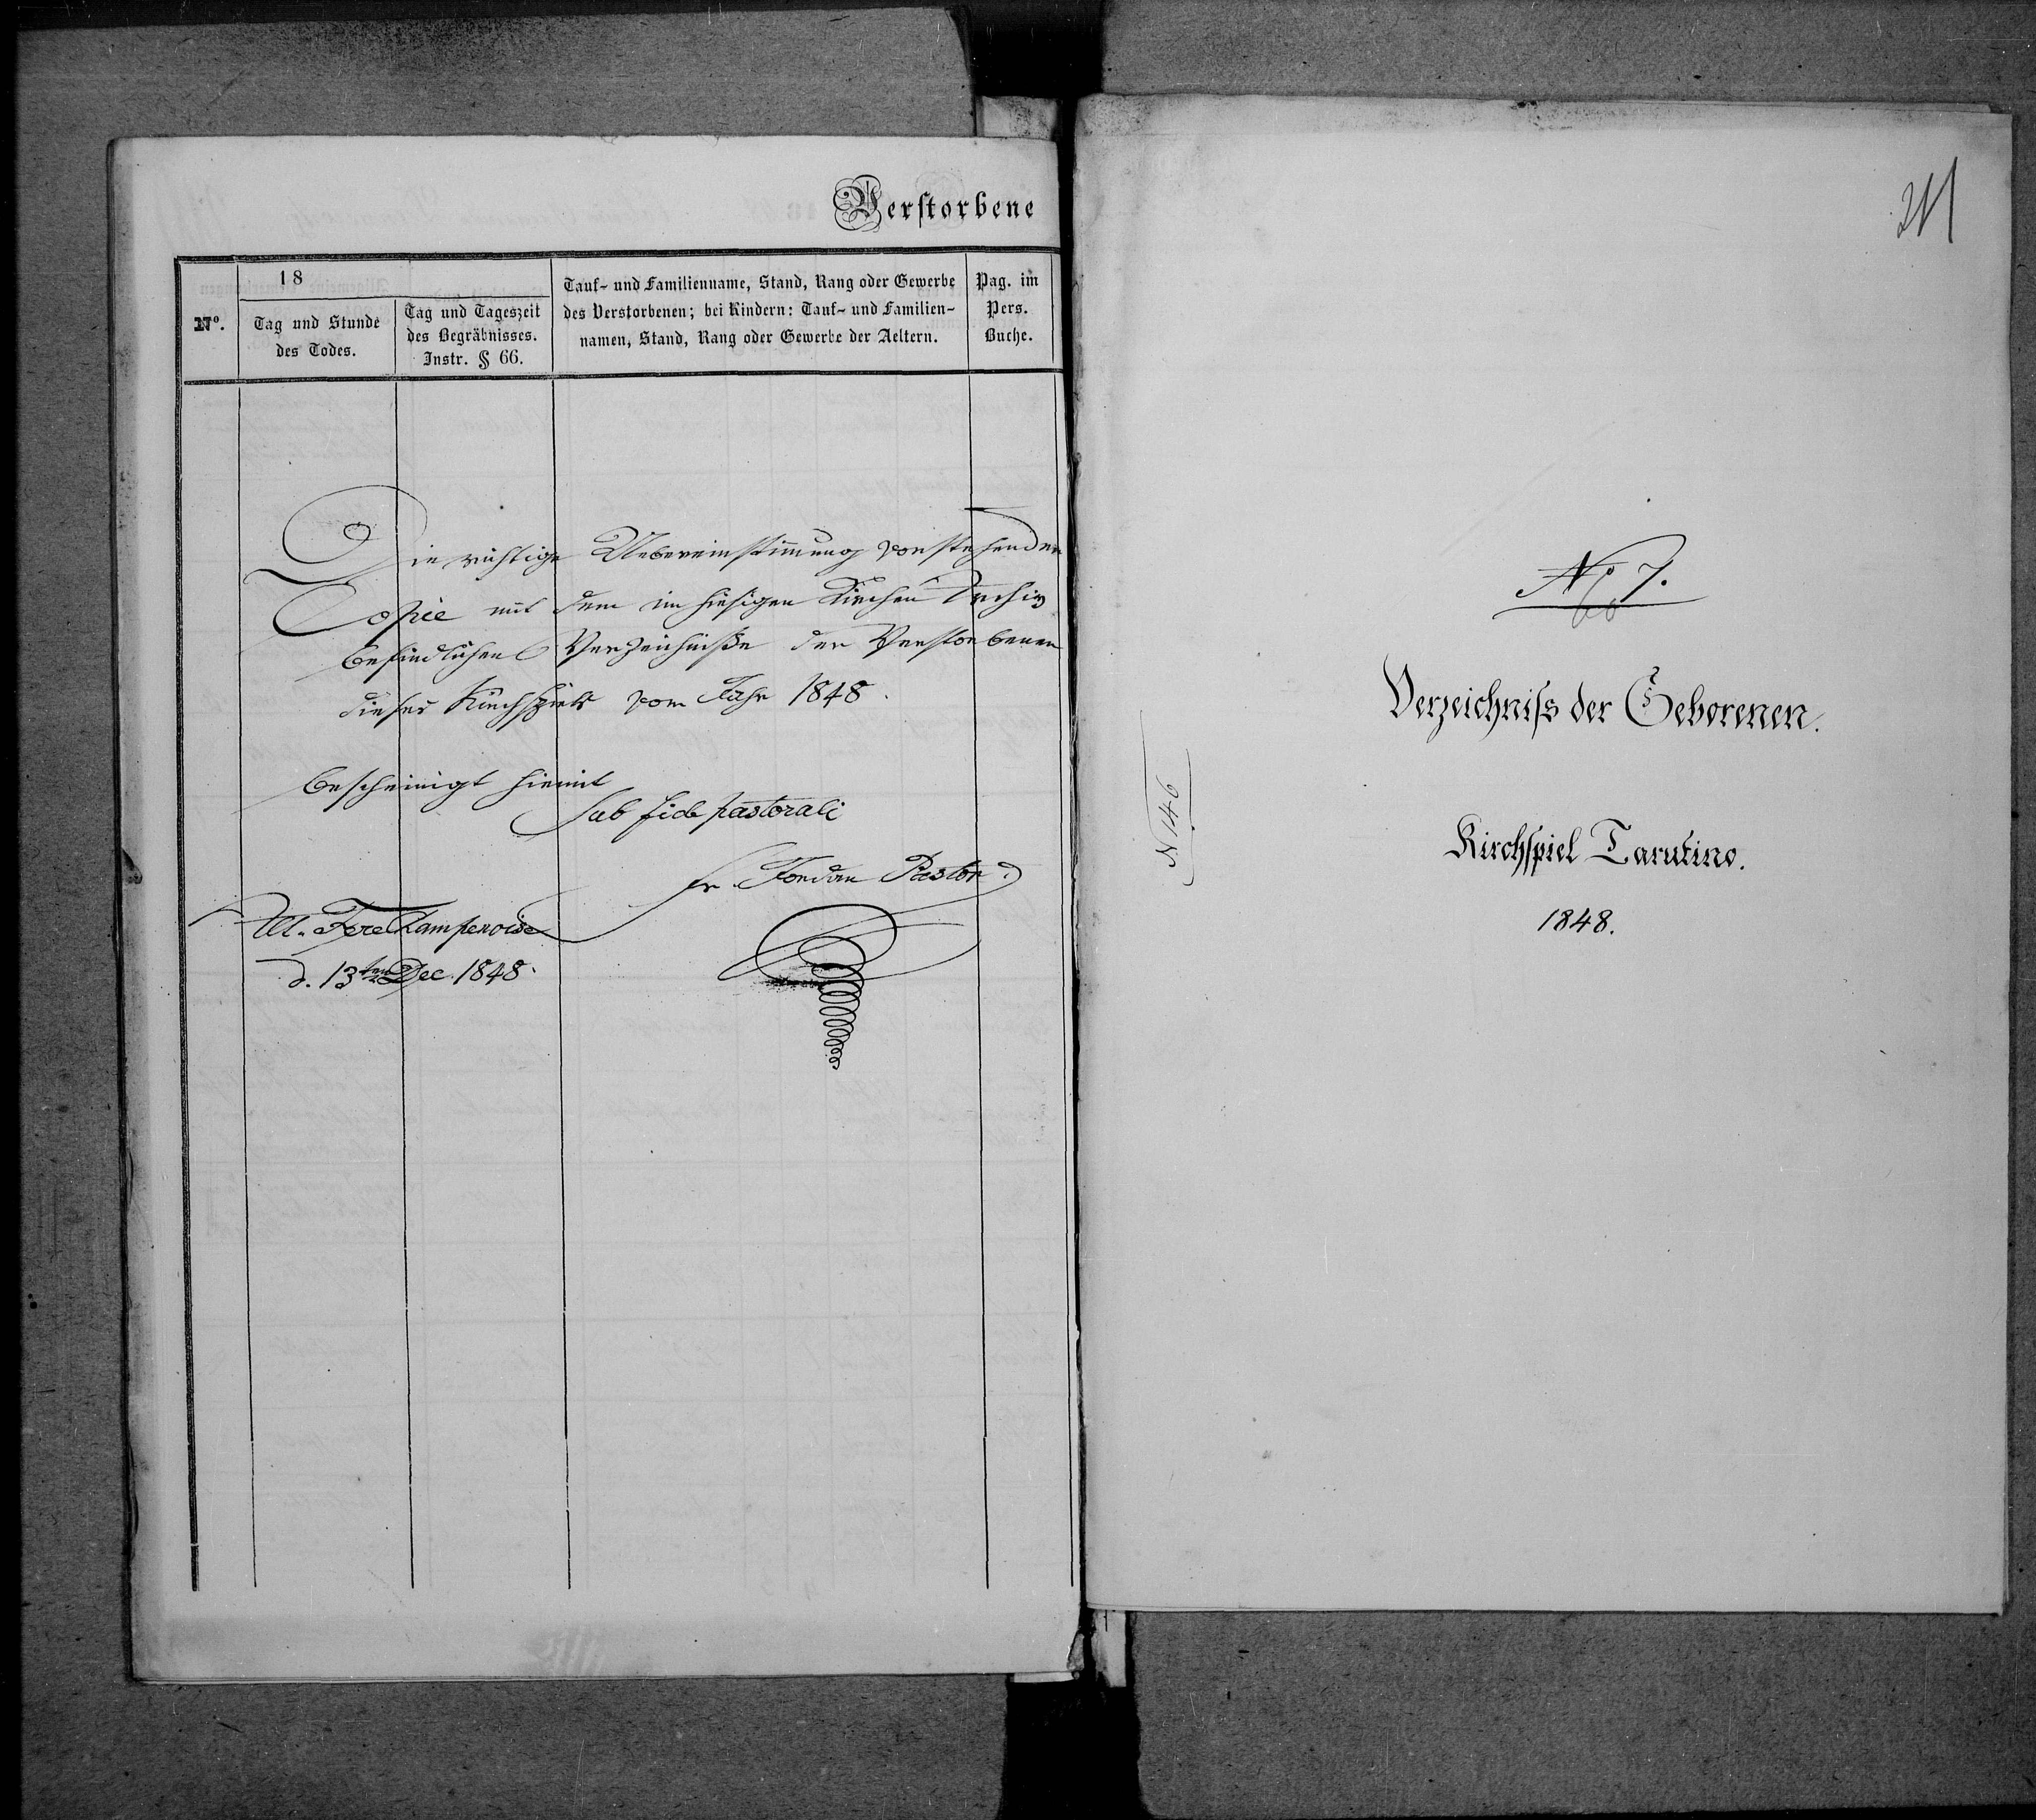 Verstorbene
No.
18
Tag und Stunde
des Todes.
Tag und Tageszeit
des Begräbnisses.
Instr. § 66.
Tauf- und Familienname, Stand, Rang oder Gewerbe
des Verstorbenen; bei Kindern: Tauf- und Familien-
namen, Stand, Rang oder Gewerbe der Aeltern.
Pag. im
Pers.
Buche.
Die richtige Uebereinstimmung vorstehender
Copie mit dem im hiesigen Kirchen Archiv
befindlichen Verzeichniße der Verstorbenen
dieses Kirchspiels vom Jahr 1848.
bescheinigt hiemit
sub fide pastorali
Fr. Jordan Pastor
Alt. Fere Champenoise
d. 13ten Dec. 1848.
211
No 7.
Verzeichniss der Geborenen.
Kirchspiel Tarutino.
1848.
N 146